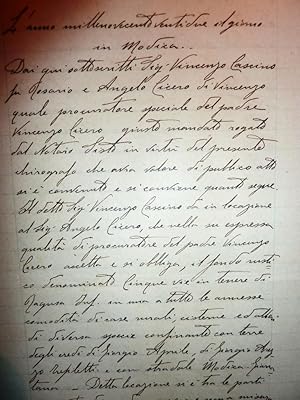 L'anno millenovecentoventidue il giorno
in Modica..
Dai qui sottoscritti Sig. Vincenzo Cascino
fu Rosario e Angelo Cicero di Vincenzo
quale procuratore speciale del padre
Vincenzo Cicero, giusto mandato rogato
dal Notaro in virtù del presente
chirografo che avrà valore di pubblico atto
si è convenuto e si conviene quanto segue.
Il detto Sig. Vincenzo Cascino dà in locazione
al Sig. Angelo Cicero, che nella su espressa
qualità di procuratore del padre Vincenzo
Cicero accetta e si obbliga, il fondo rusti
co denominato Cinque vie in tenere di
Ragusa Inf. in una a tutte le annesse
comodità di case rurali, cisterne ed altro
di diversa specie confinante con terre
degli eredi di Giorgio Aprile, di Giorgio
e con stradale Modica
Detta locazione si è ha le parti